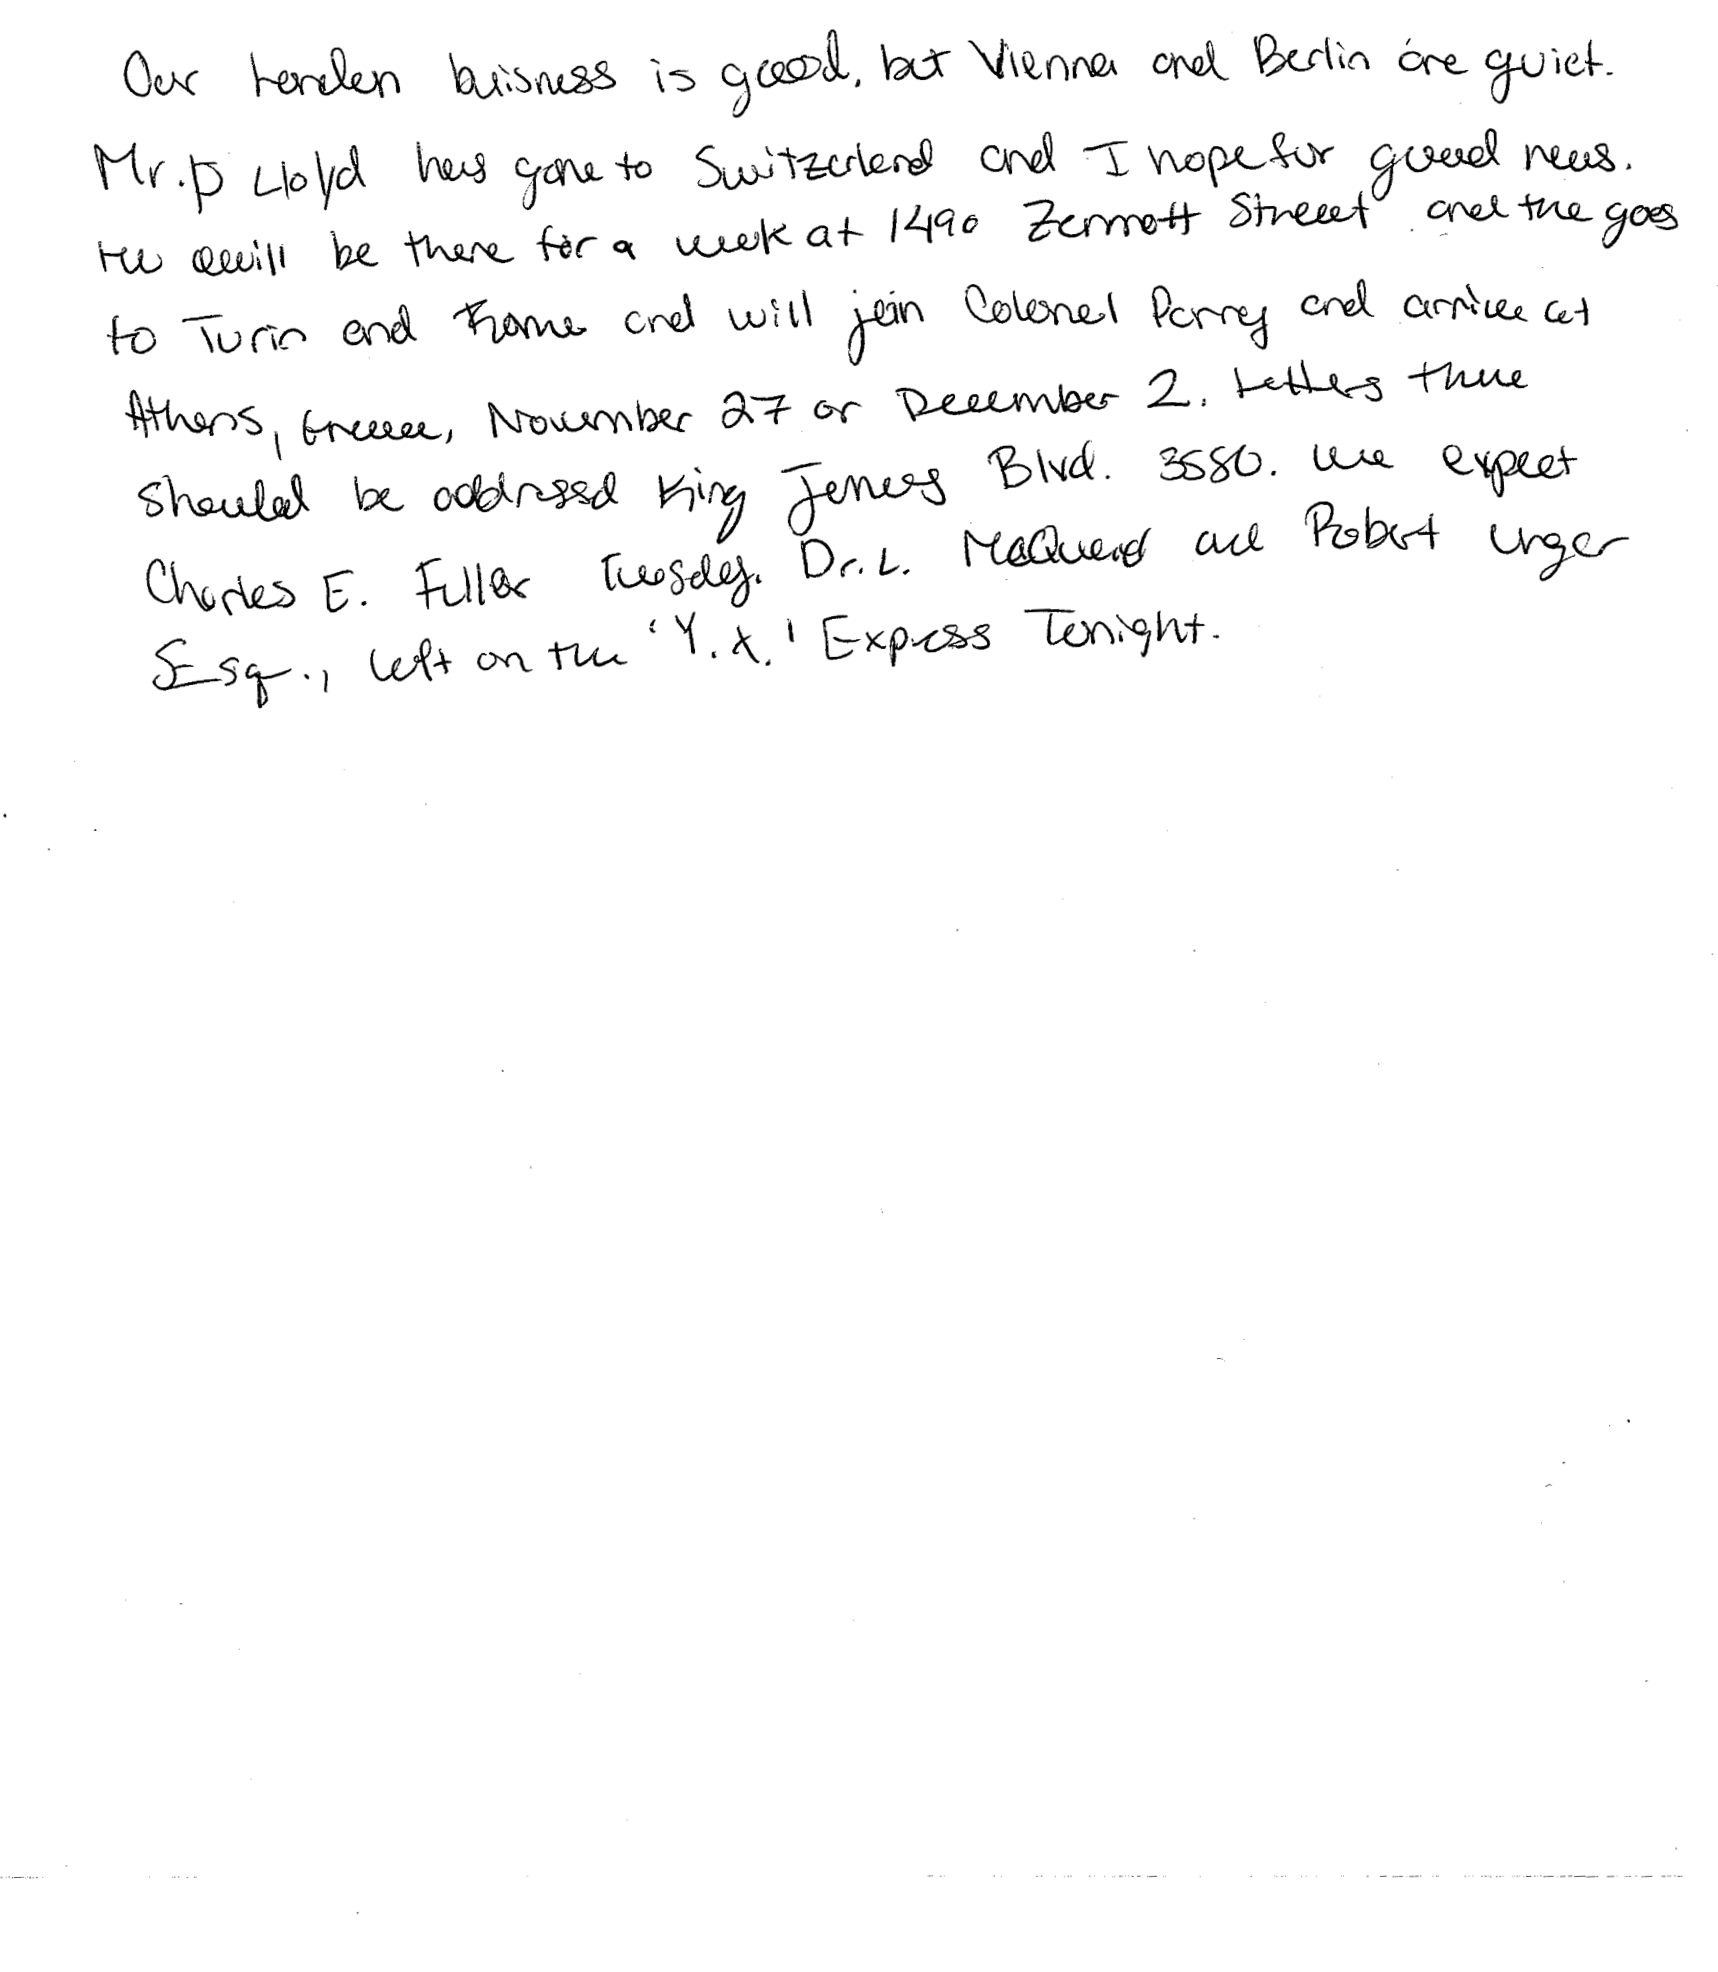 Our London buisness is good, but Vienna and Berlin are quiet.
Mr. D Lloyd has gone to Switzerland and I hope for good news.
He will be there for a week at 1490 Zermott Street and the goes
to Turin and Rome and will join Colonel Parry and arrive at
Athens, Greece, November 27 or December 2. Letters there
should be addressd King James Blvd. 3580. We expect
Charles E. Fuller Tuesday. Dr. L. McQuaid and Robert Unger
Esq., left on the 'Y.X.' Express Tonight.